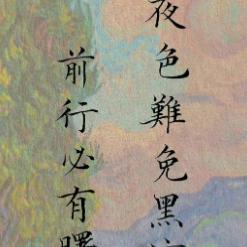 夜色難免黑
前行必有曙